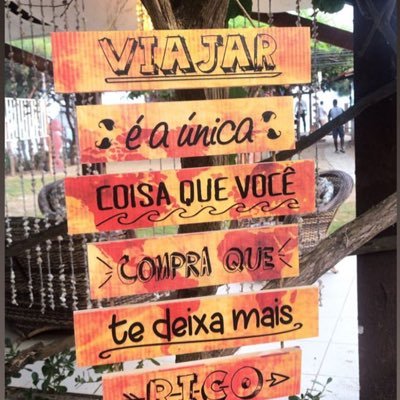 VIAJAR
é a única
COISA QUE VOCÊ
COMPRA QUE
te deixa mais
R-I-C-O